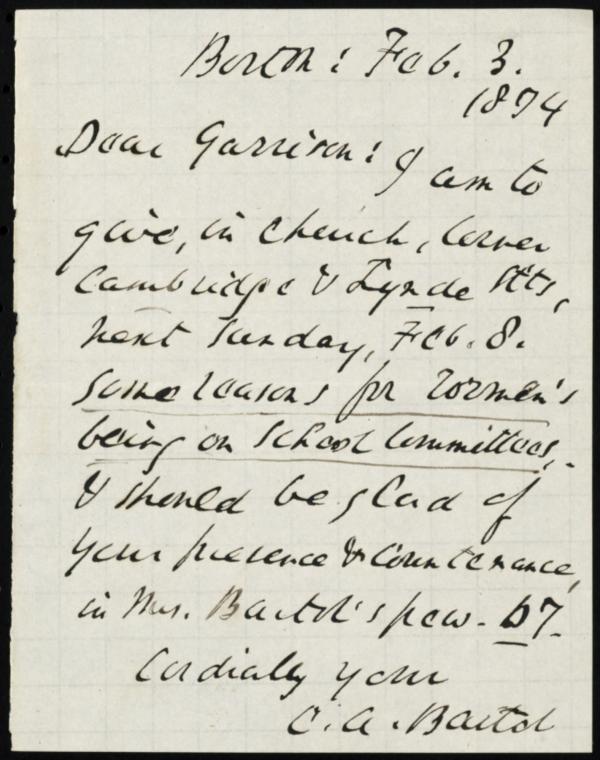 Boston: Feb. 3.
1874
Dear Garrison: I am to
give, in church, corner
Cambridge & Lynde Sts,
next Sunday, Feb. 8.
some reasons for women's
being on School Committees,
& should be glad of
your presence & countenance,
in Mrs. Bartol's pew - 67.
Cordially your
C. A. Bartol